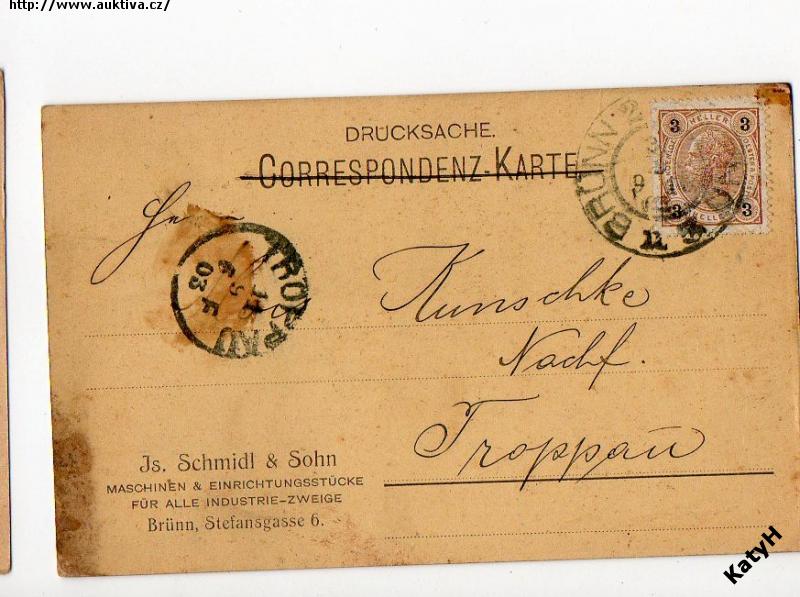 http://www.auktiva.cz/
DRUCKSACHE.
CORRESPONDENZ-KARTE
3 HELLER 3
3 HELLER 3
BRÜNN
TROPPAU
03
Kunschke
Nachf.
Troppau
Js. Schmidl & Sohn
MASCHINEN & EINRICHTUNGSSTÜCKE
FÜR ALLE INDUSTRIE-ZWEIGE
Brünn, Stefansgasse 6.
KatyH